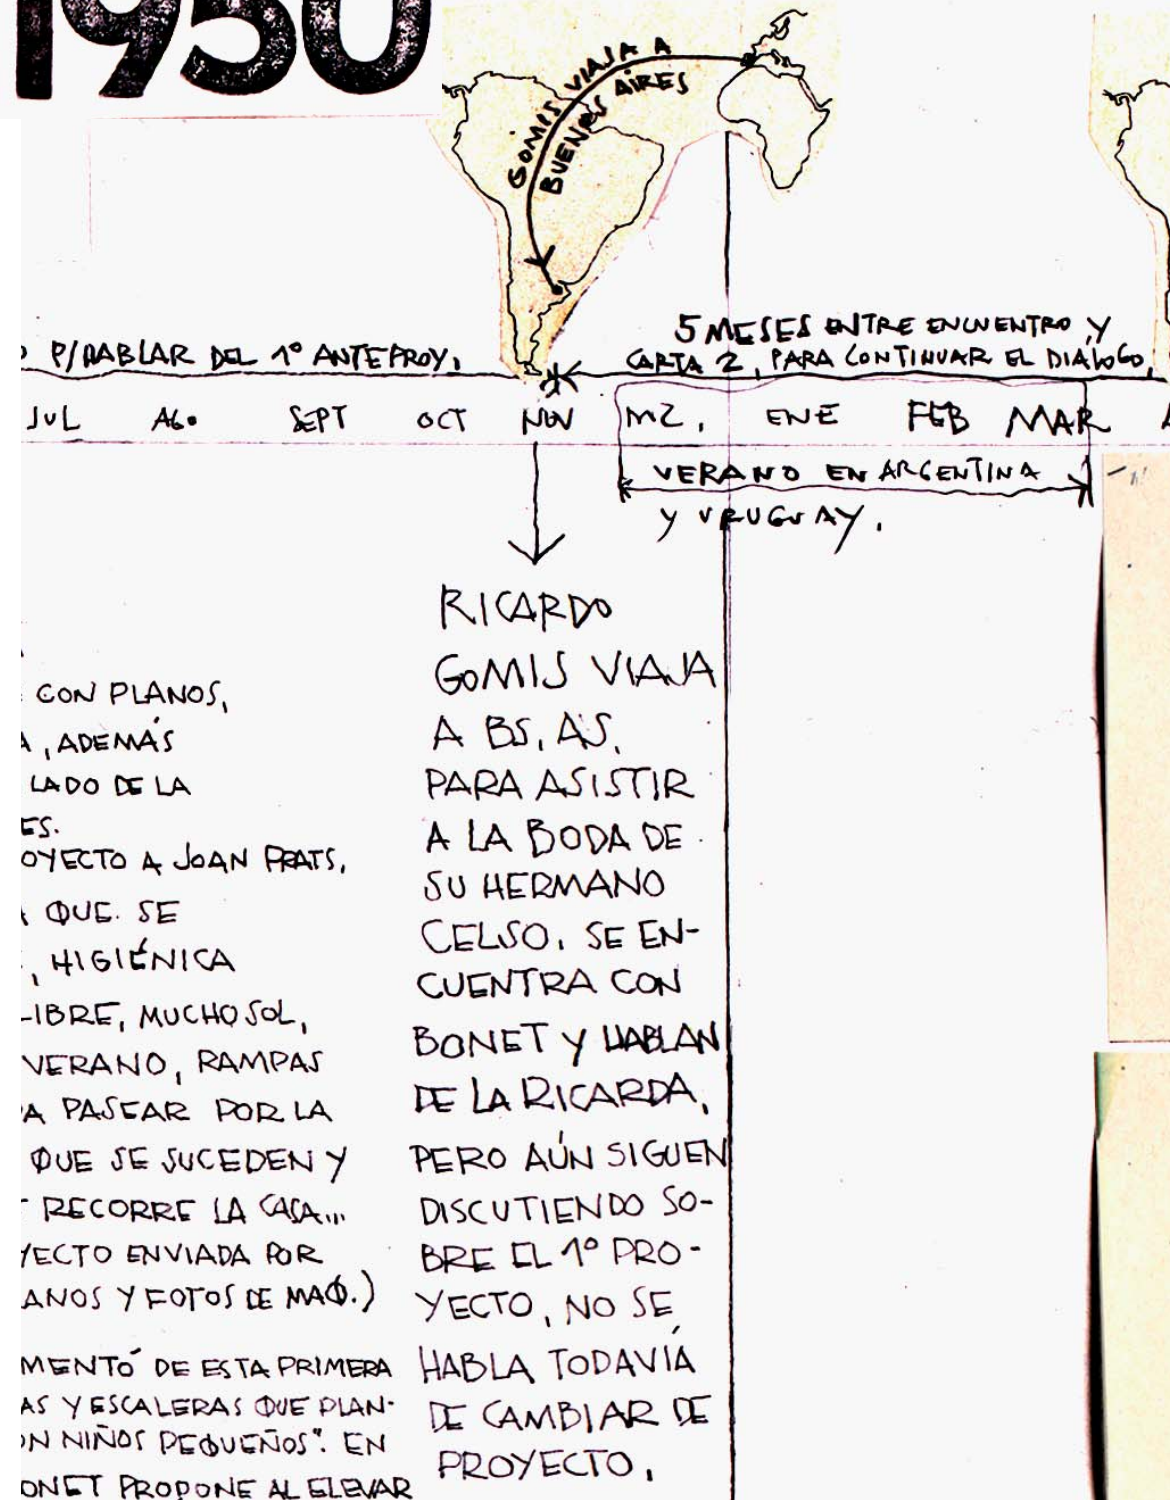 1950
GOMIS VIAJA A
BUENOS AIRES
5 MESES ENTRE ENCUENTRO Y
CARTA 2, PARA CONTINUAR EL DIÁLOGO,
P/HABLAR DEL 1º ANTEPROY.
JUL AGO SEPT OCT NOV ENE FEB MAR
VERANO EN ARGENTINA
Y URUGUAY.
CON PLANOS,
, ADEMÁS
LADO DE LA
ES.
OYECTO A JOAN PRATS,
QUE SE
, HIGIÉNICA
LIBRE, MUCHO SOL,
VERANO, RAMPAS
A PASEAR POR LA
QUE SE SUCEDEN Y
RECORRE LA CASA...
YECTO ENVIADA POR
ANOS Y FOTOS DE MAQ.)
MENTÓ DE ESTA PRIMERA
AS Y ESCALERAS QUE PLAN-
ON NIÑOS PEQUEÑOS". EN
ONET PROPONE AL ELEVAR
RICARDO
GOMIS VIAJA
A BS. AS.
PARA ASISTIR
A LA BODA DE
SU HERMANO
CELSO. SE EN-
CUENTRA CON
BONET Y HABLAN
DE LA RICARDA,
PERO AÚN SIGUEN
DISCUTIENDO SO-
BRE EL 1º PRO-
YECTO, NO SE
HABLA TODAVÍA
DE CAMBIAR DE
PROYECTO.